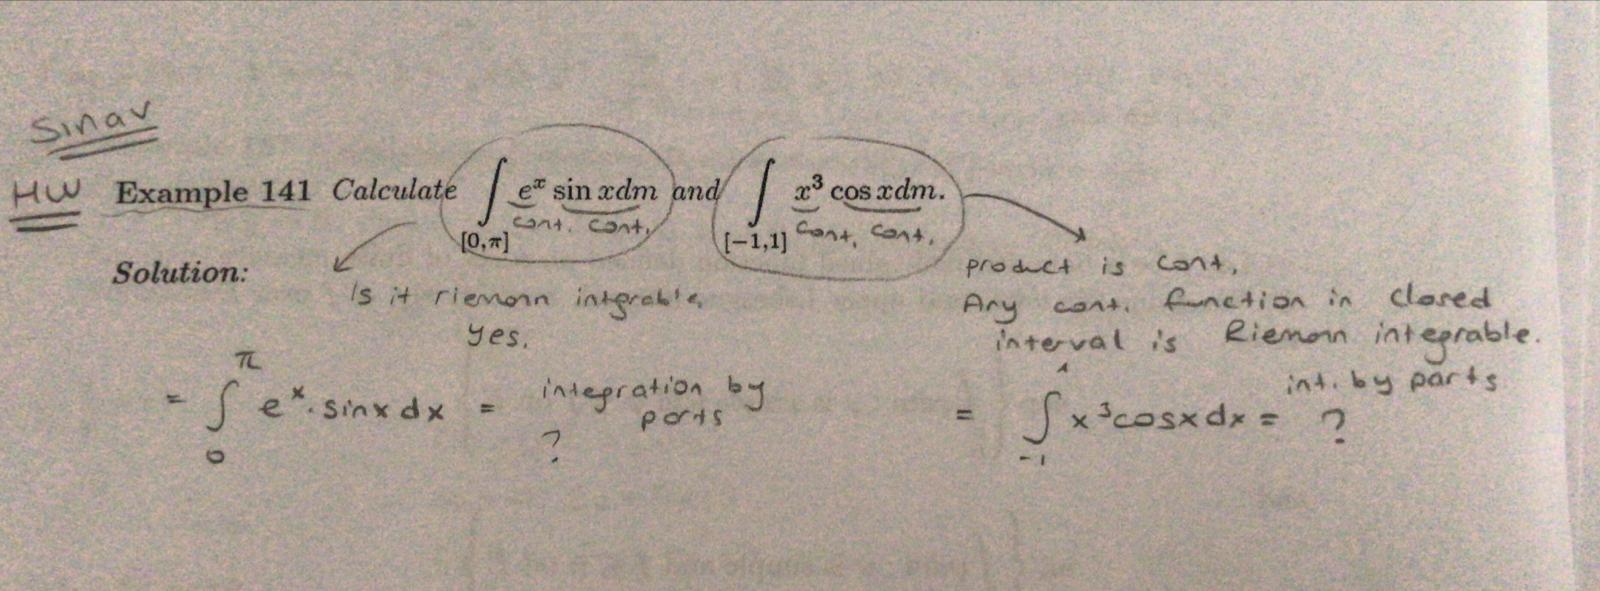 Sınav
HW Example 141 Calculate ∫ eˣ sin xdm and ∫ x³ cos xdm.
cont. cont. cont. cont.
[0,π] [−1,1]
Solution:
Is it riemann integrable,
yes.
product is cont.
Any cont. function in closed
interval is Riemann integrable.
= ∫₀^π eˣ. sinx dx = integration by
parts
?
= ∫₋₁^1 x³cosxdx = int. by parts
?